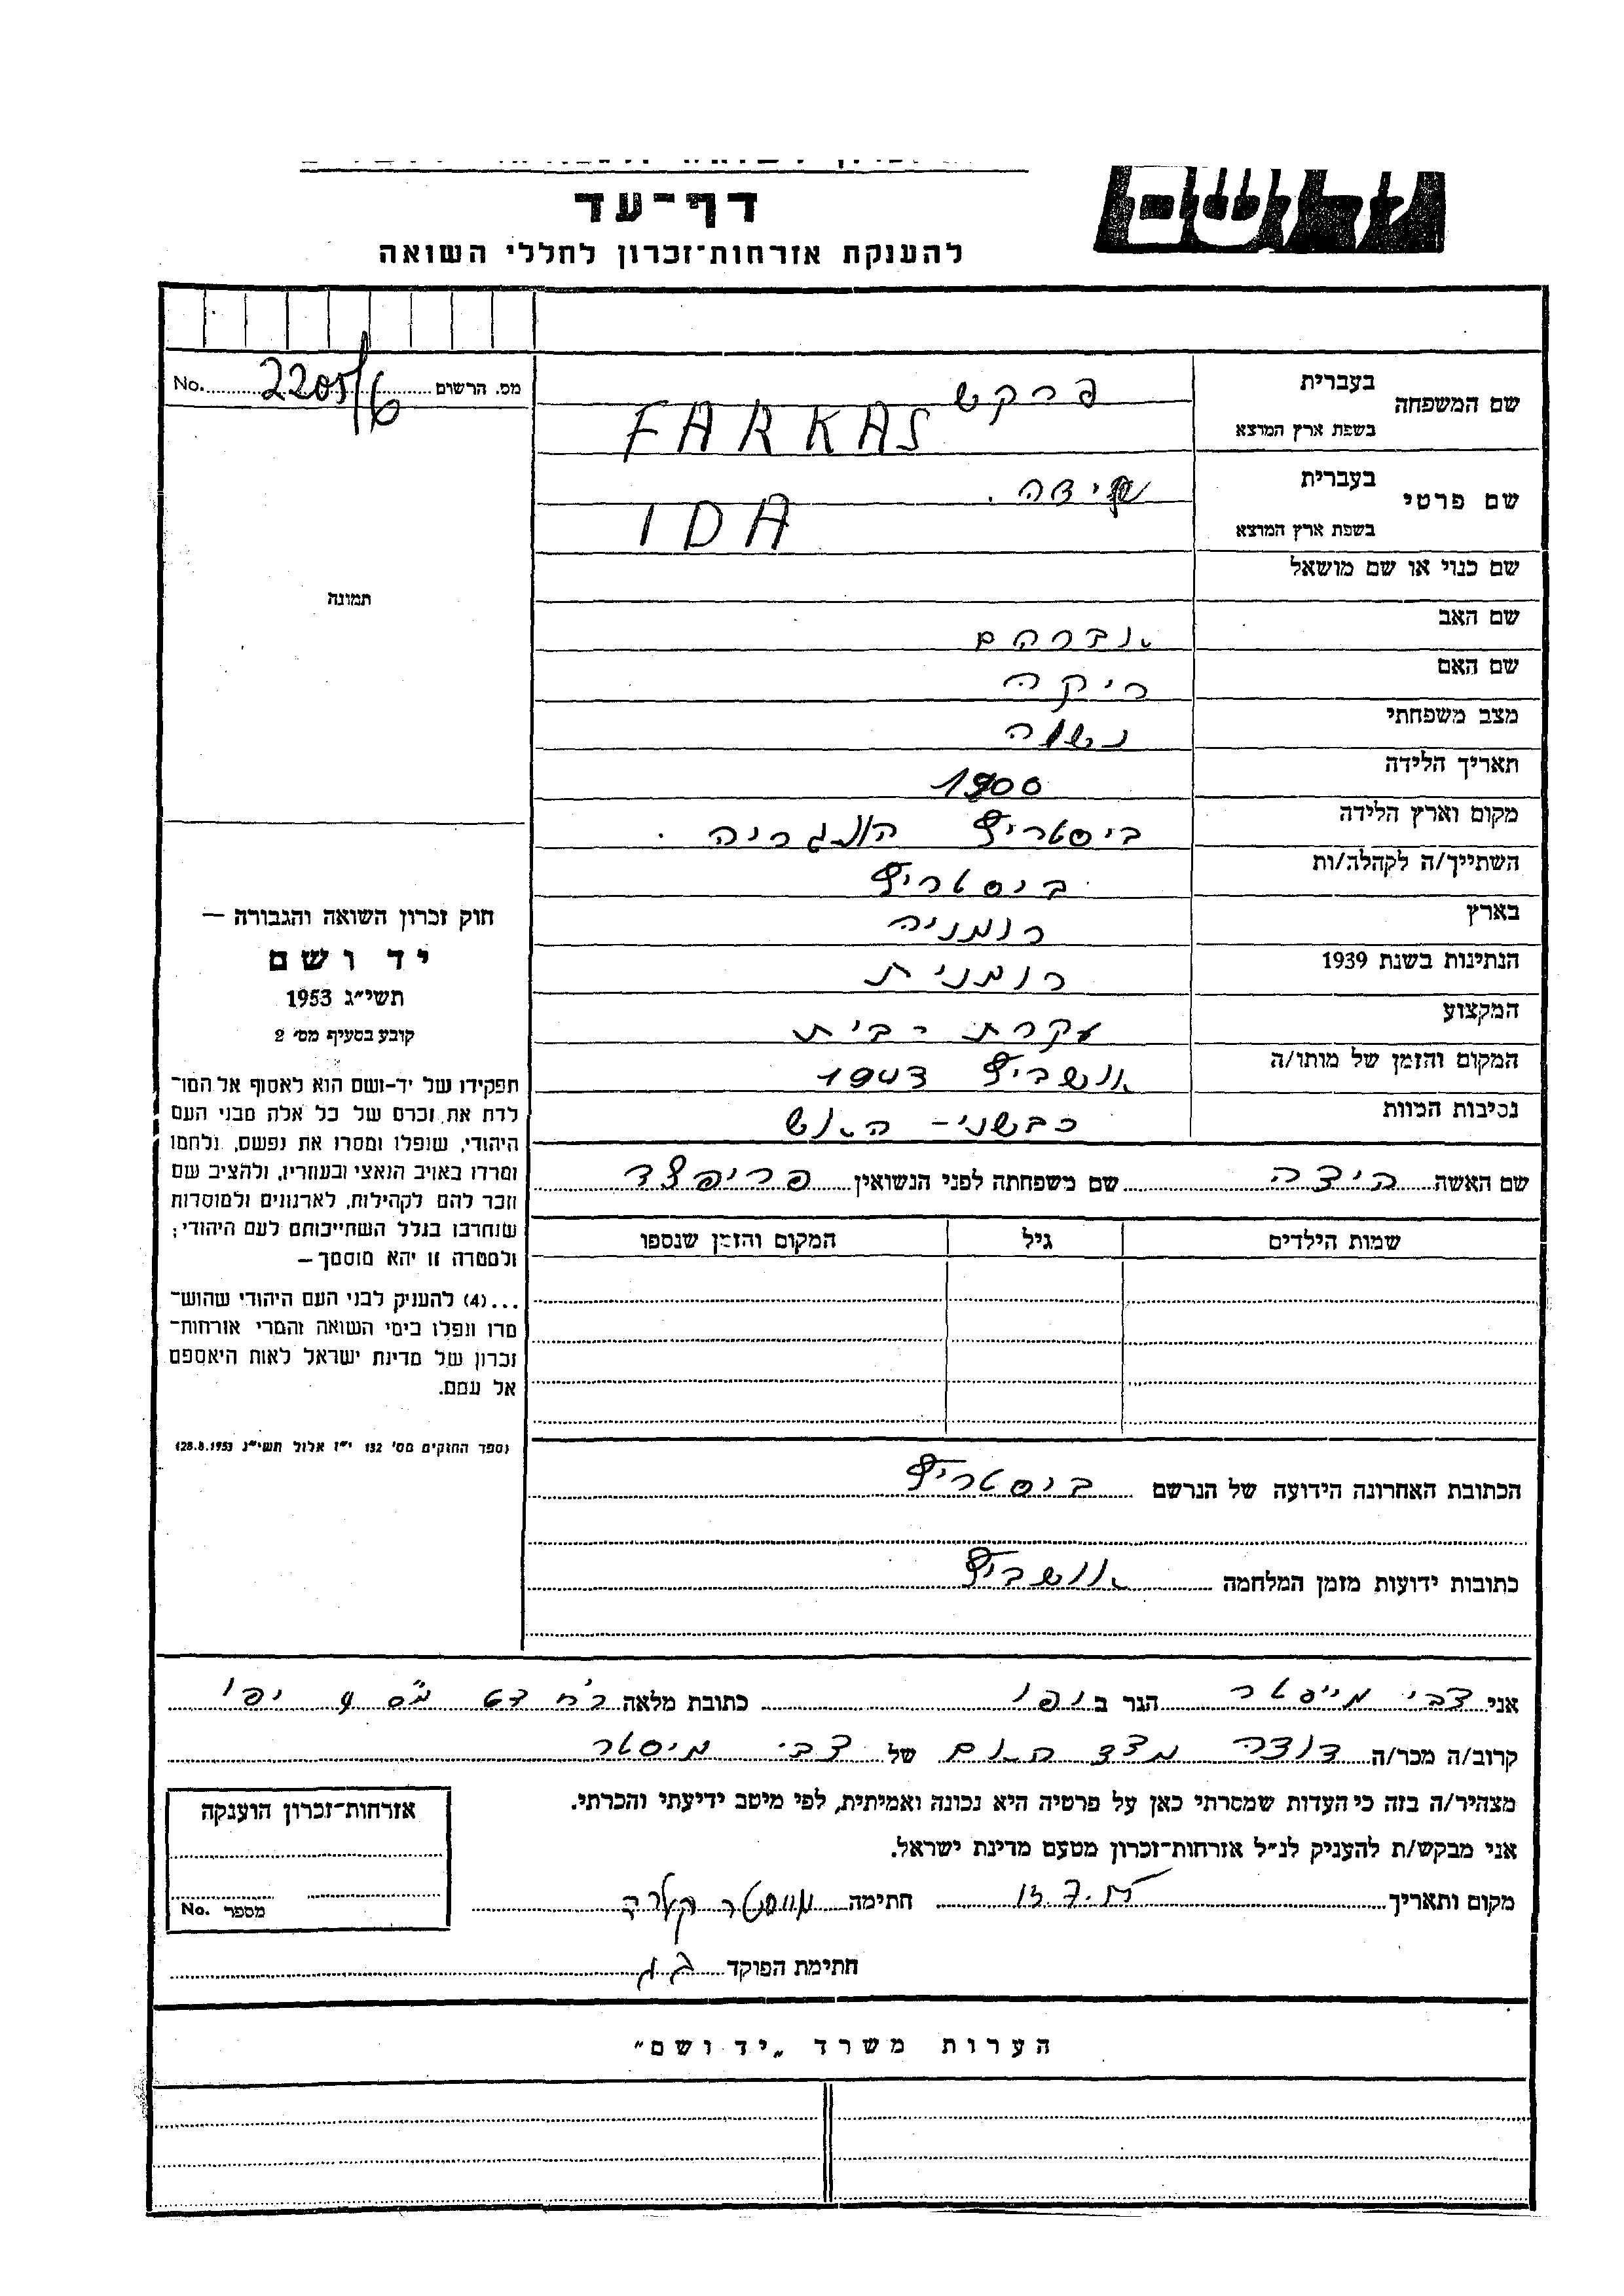 ושם
דף־עד
להענקת אזרחות־זכרון לחללי השואה
מס. הרשום 2205/6 No.
שם המשפחה
בעברית פרקש
בשפת ארץ המוצא FARKAS
שם פרטי
בעברית ידה
בשפת ארץ המוצא IDA
תמונה
שם כנוי או שם מושאל
שם האב אברהם
שם האם ריקה
מצב משפחתי נשואה
תאריך הלידה 1900
מקום וארץ הלידה ביסטריץ הונגריה
השתייך/ה לקהלה/ות ביסטריץ
בארץ רומניה
הנתינות בשנת 1939 רומנית
המקצוע עקרת-בית
המקום והזמן של מותו/ה אושביץ 1943
נסיבות המוות כבשני-האש
שם האשה שם משפחתה לפני הנשואין
שמות הילדים גיל המקום והזמן שנספו
חוק זכרון השואה והגבורה —
יד ושם
תשי״ג 1953
קובע בסעיף מס׳ 2
תפקידו של יד-ושם הוא לאסוף אל המו־
לדת את זכרם של כל אלה מבני העם
היהודי, שנפלו ומסרו את נפשם, נלחמו
ומרדו באויב הנאצי ובעוזריו, ולהציב שם
וזכר להם לקהילות, לארגונים ולמוסדות
שנחרבו בגלל השתייכותם לעם היהודי;
ולמטרה זו יהא מוסמך—
...(4) להעניק לבני העם היהודי שהוש־
מדו ונפלו בימי השואה והמרי אזרחות־
זכרון של מדינת ישראל לאות היאספם
אל עמם.
(ספר החוקים מס׳ 132 י״ז אלול תשי״ג 28.8.1953)
הכתובת האחרונה הידועה של הנרשם ביסטריץ
כתובות ידועות מזמן המלחמה אושביץ
אני צבי מייסטר הגר ב יפו כתובת מלאה יפו
קרוב/ה מכר/ה דודה מצד האם של צבי מיסטר
מצהיר/ה בזה כי העדות שמסרתי כאן על פרטיה היא נכונה ואמיתית, לפי מיטב ידיעתי והכרתי.
אני מבקש/ת להעניק לנ״ל אזרחות־זכרון מטעם מדינת ישראל.
מקום ותאריך חתימה
חתימת הפוקד
אזרחות־זכרון הוענקה
מספר No.
הערות משרד „יד ושם״